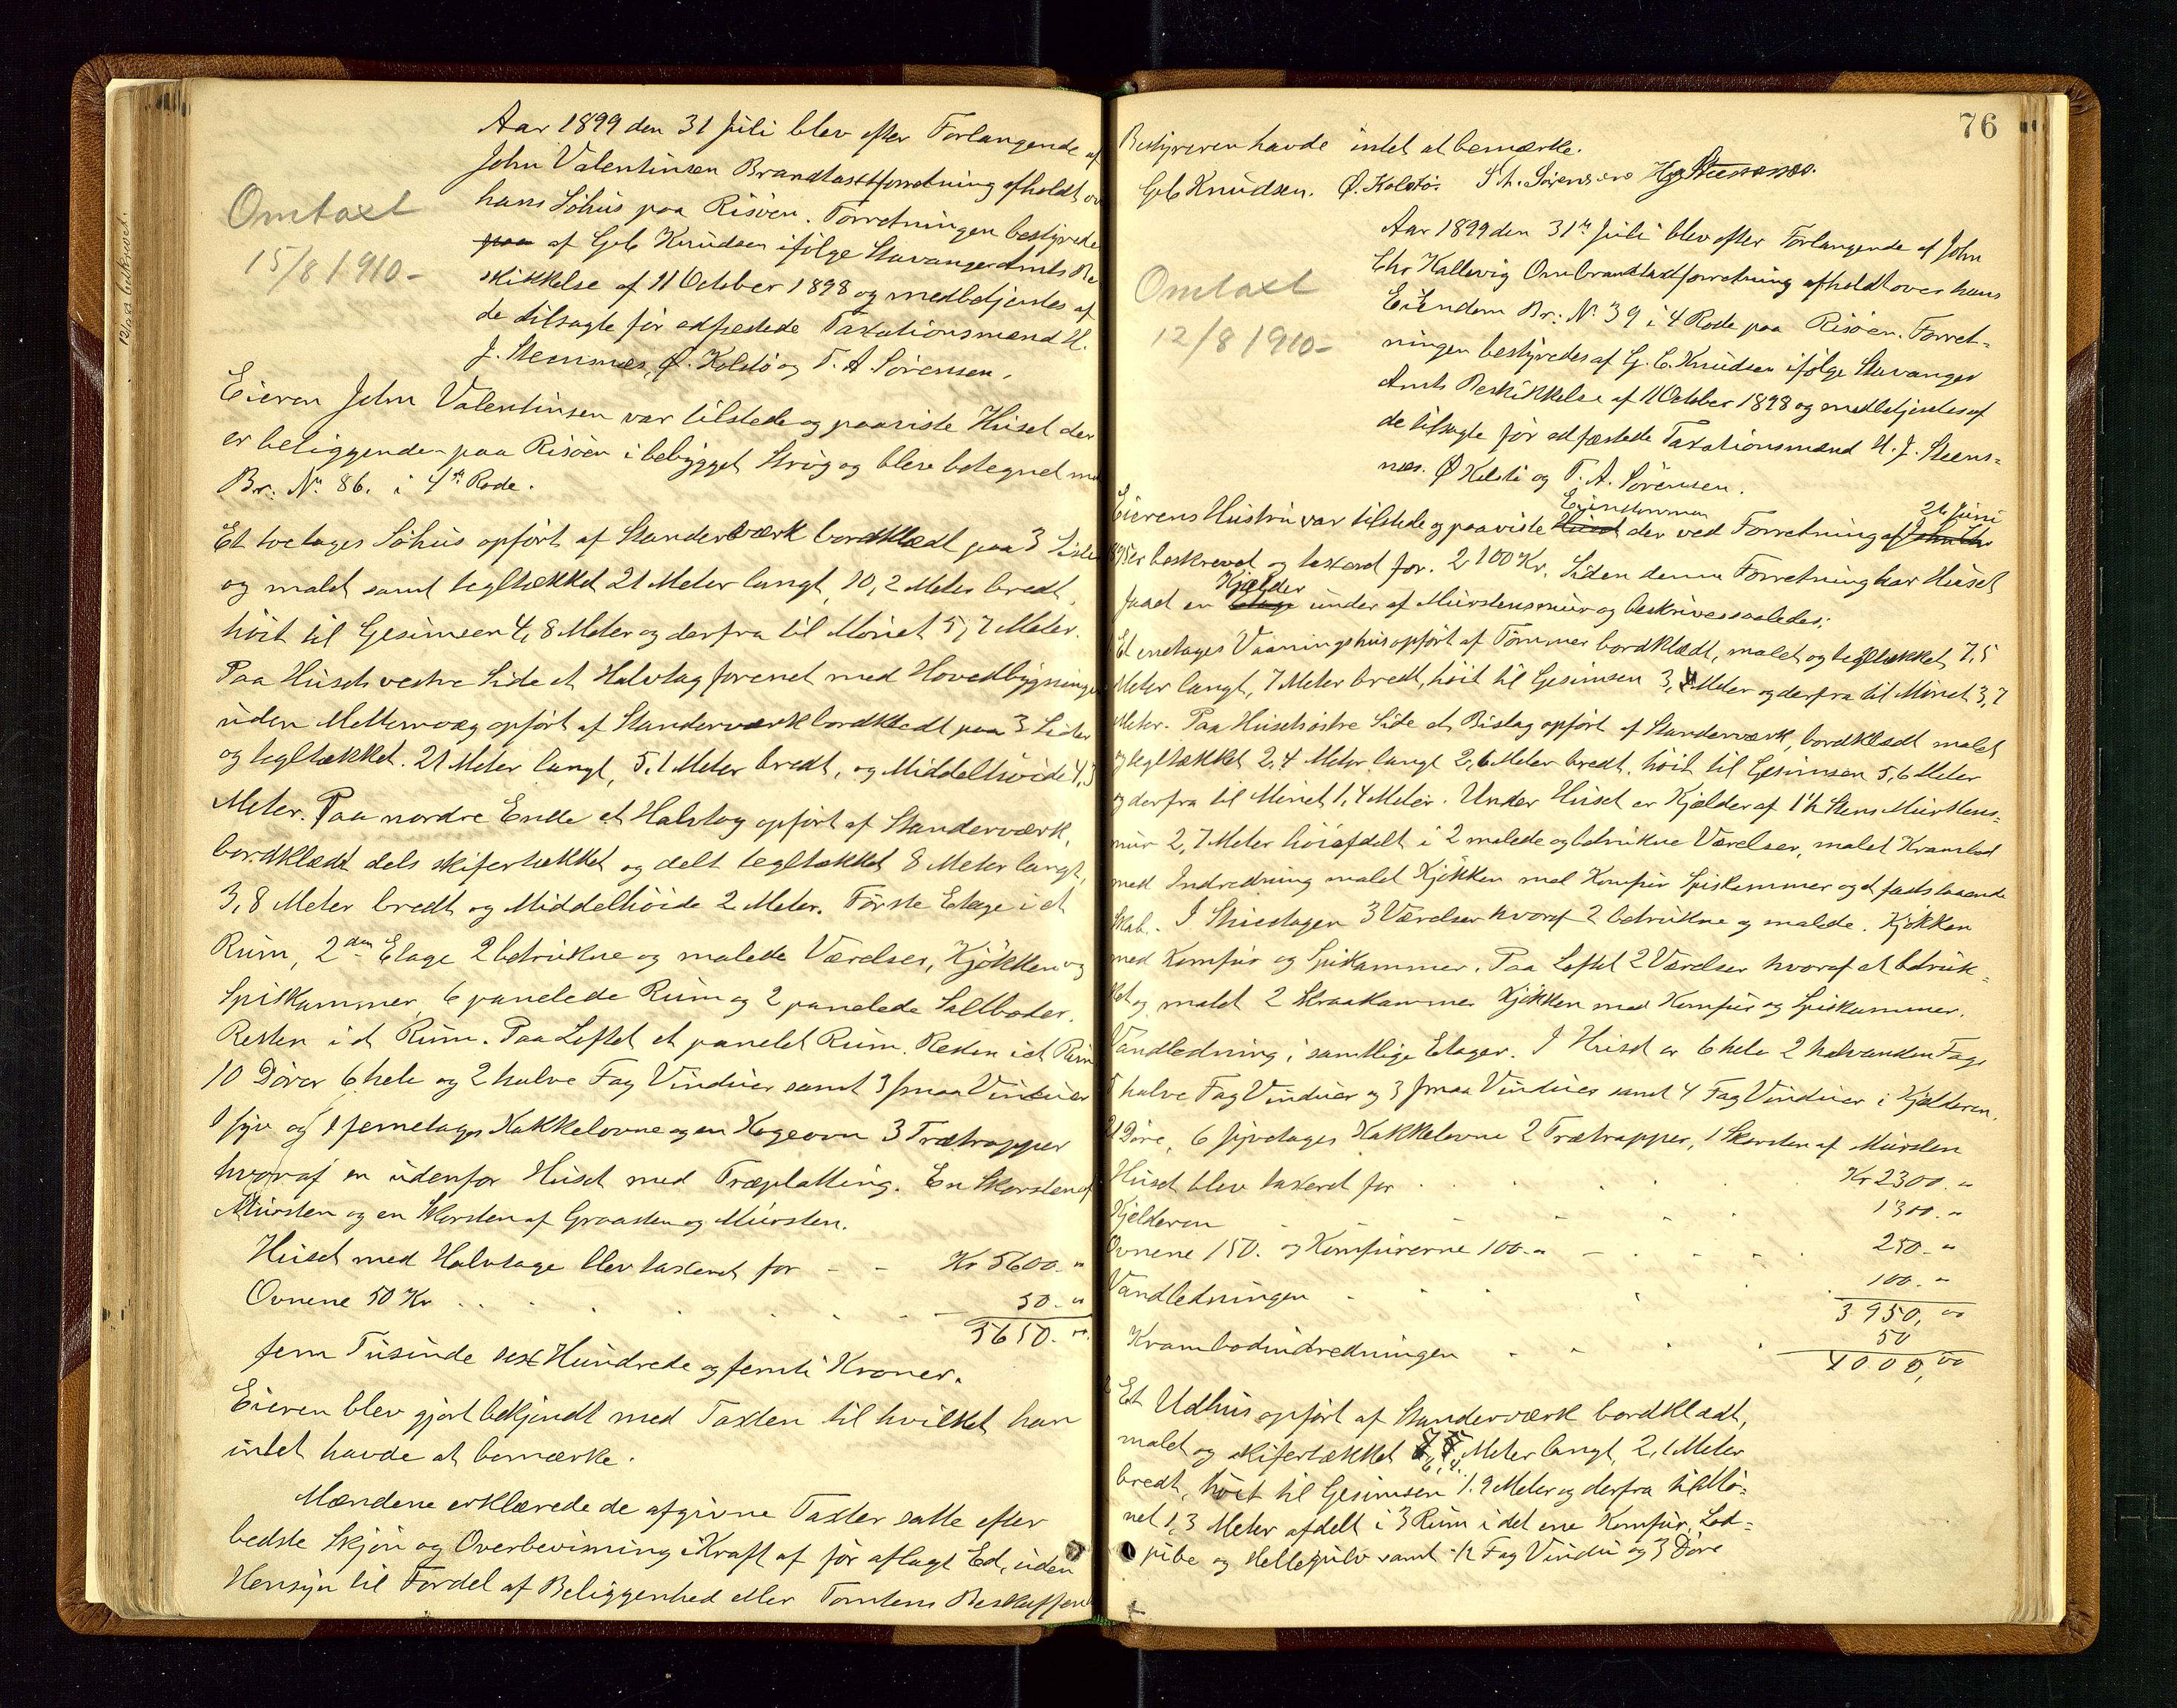 Aar 1899 den 31 Juli blev efter Forlangende af
John Valentinsen Brandtaxtforretning afholdt ov
hans Söhus paa Risöen. Forretningen bestyrede
paa af Geb Knudsen ifölge Stavanger Amts Be
skikkelse af 11 October 1898 og medbetjentes af
de tilsagte för edfæstede Taxationsmænd H.
J. Steensnæs, Ø. Kolstö og T. A Sörensen.
Omtaxt
15/8 1910-
Eieren John Valentinsen var tilstede og paaviste Huset der
er beliggende paa Risöen i bebygget Strög og blev betegnet me
Br. No. 86. i 4de Rode.
Et toetages Söhus opfört af Standerværk bordklædt paa 3 Sider
og malet samt tegltækket 21 Meter langt, 10,2 Meter bredt,
höit til Gesimsen 4,8 Meter og derfra til Mönet 5,7 Meter.
Paa Husets vestre Side et Halvtag forenet med Hovedbygningen
uden Mellemvæg opfört af Standerværk bordklædt paa 3 Sider
og tegltækket. 21 Meter langt, 5,1 Meter bredt, og Middelhöide 4,3
Meter. Paa nordre Ende et Halvtag opfört af Standerværk,
bordklædt dels skifertækket og delt tegltækket 8 Meter langt,
3,8 Meter bredt og Middelhöide 2 Meter. Förste Etage i et
Rum, 2den Etage 2 betrukne og malede Værelser, Kjökken og
Spiskammer, 6 panelede Rum og 2 panelede Saltboder.
Resten i et Rum. Paa Loftet et panelet Rum. Resten i et Rum
10 Dörer 6 hele og 2 halve Fag Vinduer samt 3 smaa Vinduer
1 syv og 1 femetages Kakkelovne og en Kogeovn 3 Trætrapper
hvoraf en udenfor Huset med Træplatting. En Skorsten af
Mursten og en Skorsten af Graasten og Mursten.
Huset med Halvtage blev taxeret for - - Kr 5600. "
Ovnene 50 Kr . . . . . . 50. "
5650. "
fem Tusinde sex Hundrede og femti Kroner.
Eieren blev gjort bekjendt med Taxten til hvilket han
intet havde at bemærke.
Mændene erklærede de afgivne Taxter satte efter
bedste Skjön og Overbevisning i Kraft af för aflagt Ed, uden
Hensyn til Fordel af Beliggenhed eller Tomtens Beskaffen
76
Bestyreren havde intet at bemærke.
Geb Knudsen. Ø. Kolstö. T A. Sörensen H J Steensnæs.
Aar 1899 den 31te Juli blev efter Forlangende af John
Chr Kallevig Ombrandtaxtforretning afholdt over hans
Eiendom Br: No 39 i 4 Rode paa Risöen. Forret-
ningen bestyredes af G. C. Knudsen ifölge Stavanger
Amts Beskikkelse af 11 October 1898 og medbetjentes af
de tilsagte för edfæstede Taxationsmænd H. J. Steens-
næs. Ø Kolstö og T. A. Sörensen.
Omtaxt
12/8 1910-
Eiendommen 26 Juni
Eierens Hustru var tilstede og paaviste Huset der ved Forretning af John Chr
1895 er beskrevet og taxeret for. 2100 Kr. Siden denne Forretning har Huset
Kjælder
faaet en Etage under af Murstensmur og beskrives saaledes:
Et enetages Vaaningshus opfört af Tömmer bordklædt, malet og tegltækket, 7,5
Meter langt, 7 Meter bredt, höit til Gesimsen 3, Meter og derfra til Mönet 3,7
Meter. Paa Husets östre Side et Bislag opfört af Standerværk, bordklædt malet
og tegltækket 2,4 Meter langt 2,6 Meter bredt. höit til Gesimsen 5,6 Meter
og derfra til Mönet 1,4 Meter. Under Huset er Kjælder af 1½ Stens Murstens-
mur 2,7 Meter höi afdelt i 2 malede og betrukne Værelser, malet Krambod
med Indredning malet Kjökken med Komfur Spiskammer og et fastst­aaende
Skab. I Stueetagen 3 Værelser hvoraf 2 betrukne og malede. Kjökken
med Komfur og Spiskammer. Paa Loftet 2 Værelser hvoraf et betruk-
ket og malet 2 Skraakammer Kjökken med Komfur og Spiskammer.
Vandledning i samtlige Etager. I Huset er 6 hele 2 halvanden Fags
halve Fag Vinduer og 3 smaa Vinduer samt 4 Fag Vinduer i Kjælderen.
21 Döre, 6 syvetages Kakkelovne 2 Trætrapper, 1 Skorsten af Mursten
Huset blev taxeret for . . . . . Kr 2300. "
Kjelderen - - - - - 1300. "
Ovnene 150. og Komfurerne 100. " - . - . 250. "
Vandledningen . . . . 100. "
3950, 00
Krambodindredningen - - . . 50
4000, 00
Et Udhus opfört af Standerværk bordklædt,
malet og skifertækket 6,4. Meter langt, 2,1 Meter
bredt, höit til Gesimsen 1.9 Meter og derfra til Mö-
net 1,3 Meter afdelt i 3 Rum i det ene Komfur, Lod-
pibe og Hellegulv samt ½ Fag Vindu og 3 Döre